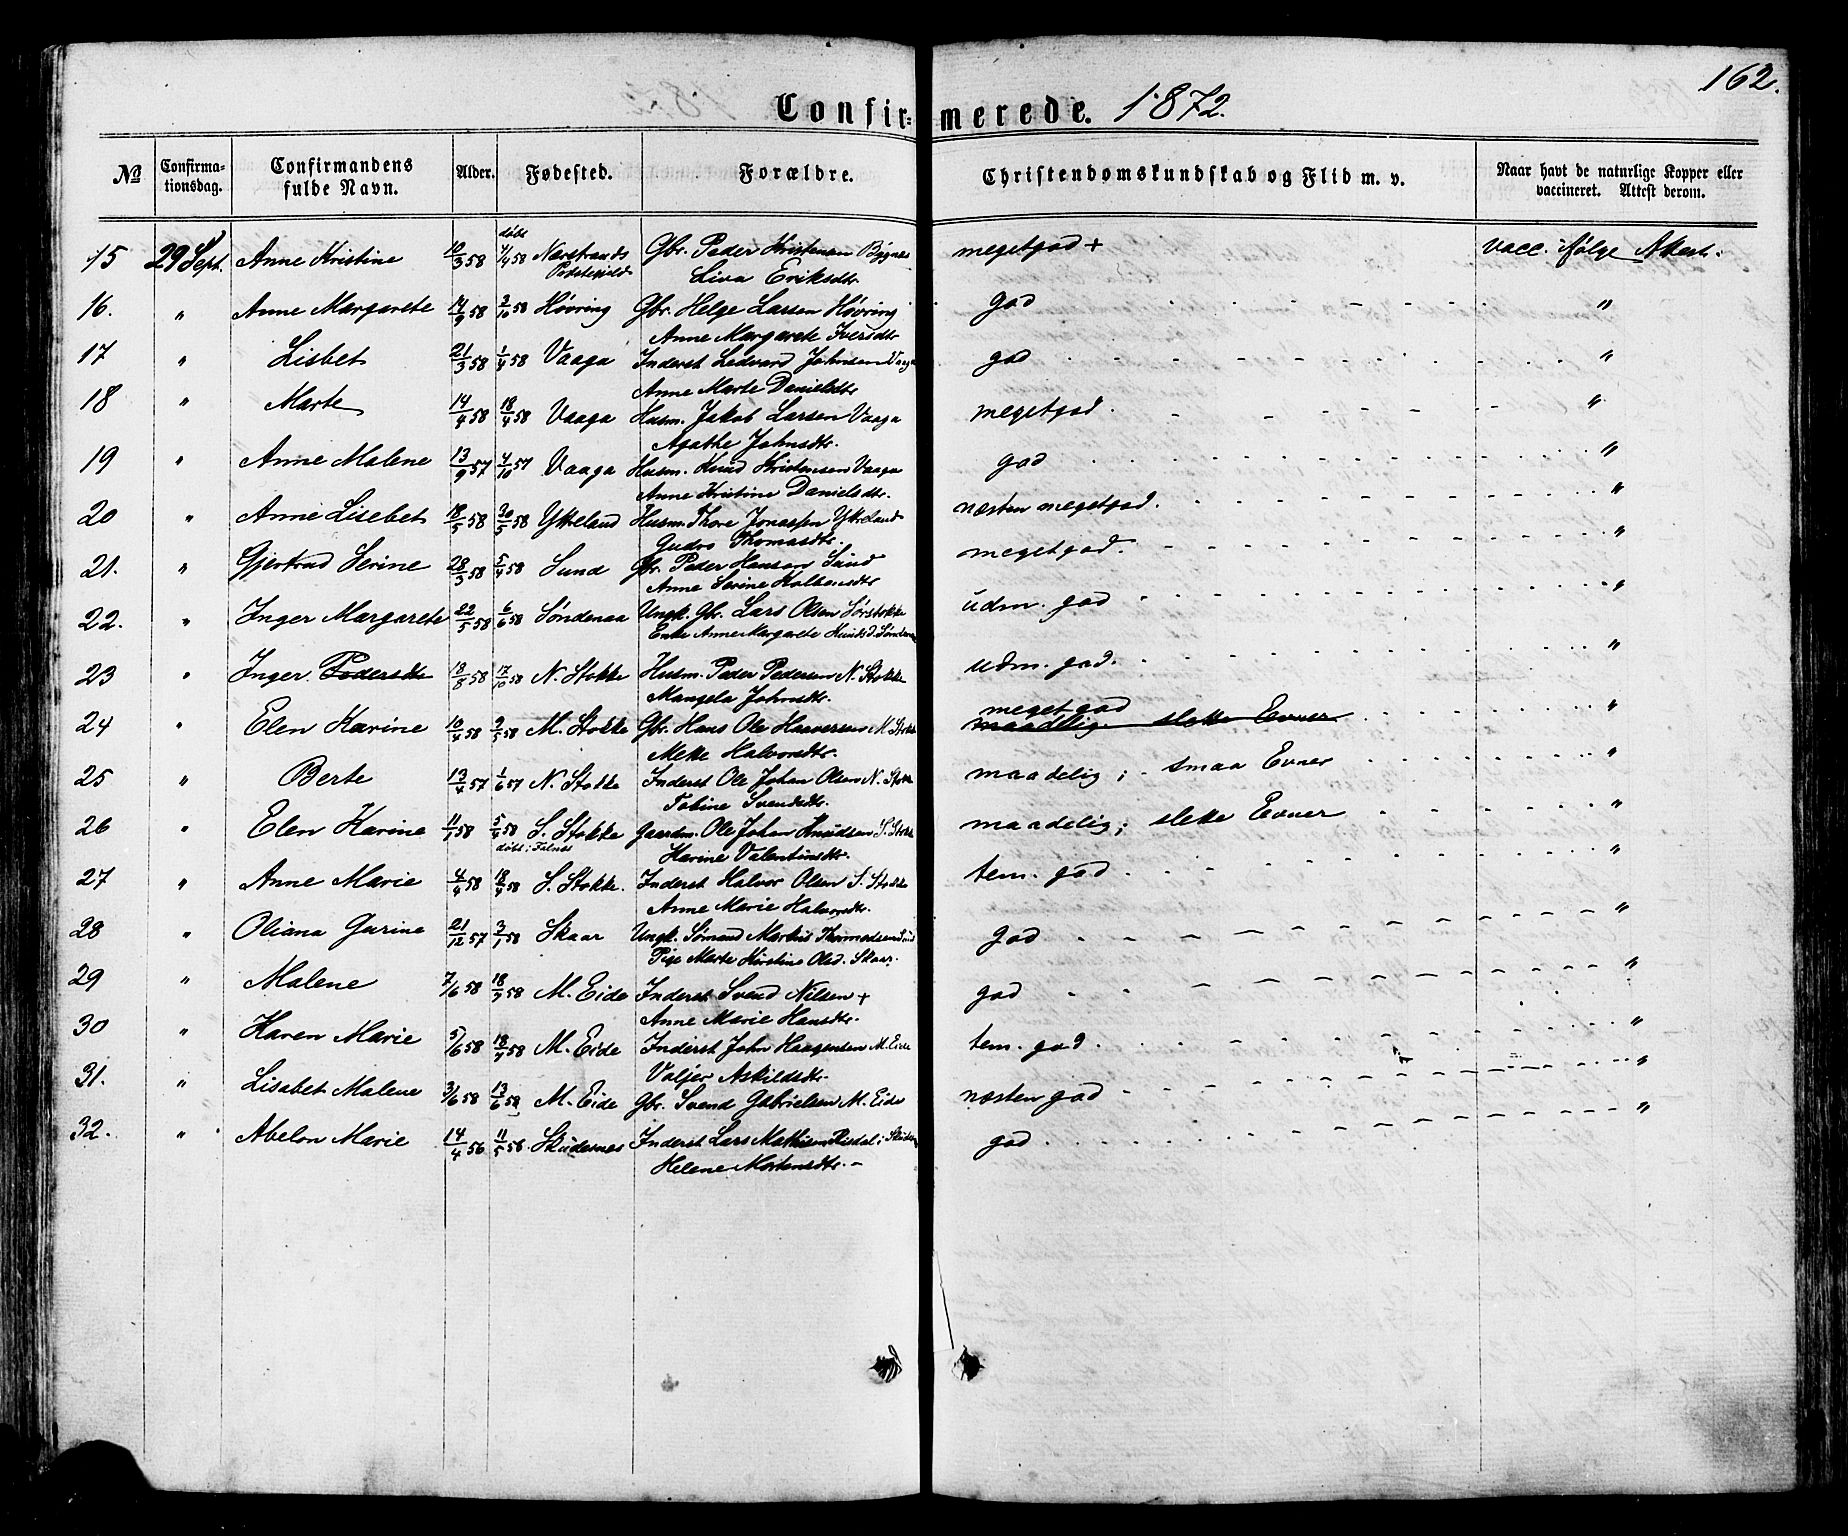 162.
Confir= merede. 1872.
№ Confirma-tionsdag. Confirmandens fulde Navn. Alder. Fødested. Forældre. Christendomskundskab og Flid m. v. Naar havt de naturlige Kopper eller vaccineret. Attest derom.
døbt
15 29 Sept. Anne Kristine 10/3 58 4/4 58 Nærstrands Gbr. Peder Kristensen megetgod + vacc. ifølge Attest.
Præstegjeld Liva Eriksdtr.
16. " Anne Margarete 14/9 58 3/10 58 Høvring Gbr. Helge Larsen Høvring god "
Anne Margarete Iversdtr
17 " Lisbet 21/3 58 1/4 58 Vaaga Inderst Ledvard Johnsen Vaaga god "
Anne Marte Danielsdtr
18 " Marte 14/4 58 18/4 58 Vaaga Husm. Jakob Larsen Vaaga megetgod. "
Agathe Johnsdtr.
19 " Anne Malene 13/9 57 4/10 57 Vaaga Husm. Knud Kristensen Vaaga god "
Anne Kristine Danielsdtr.
20 " Anne Lisebet 18/5 58 30/5 58 Ytreland Husm. Thore Jonassen Ytreland næsten megetgod. "
Gudro Thomasdtr.
21. " Gjertrud Serine 28/3 58 5/4 58 Sund Gbr. Peder Hansen Sund megetgod. "
Anne Serine
22. " Inger Margarete 22/5 58 6/6 58 Søndenaa Ungk. Gbr. Lars Olsen Sørstokke udm. god "
Enke Anne Margarete Knudsd. Søndenaa
23 " Inger. Pedersdtr 13/8 58 17/10 58 N. Stokke Husm. Peder Pedersen N. Stokke udm. god. "
Mangela Johnsdtr.
megetgod
24 " Elen Karine 10/4 58 2/5 58 M. Stokke Gbr. Hans Ole Haaversen M. Stokke maadelig slette Evner "
Mette Halvorsdtr.
25 " Berte 13/4 57 1/6 57 N. Stokke Inderst Ole Johan Olsen N. Stokke maadelig; smaa Evner "
Tobine Svendsdtr.
26 " Elen Karine 11/1 58 5/4 58 S. Stokke Gaardm. Ole Johan Knudsen S. Stokke maadelig; slette Evner "
døbt i Falnes Karine Valentinsdtr.
27 " Anne Marie 4/4 58 18/4 58 S. Stokke. Inderst Halvor Olsen S. Stokke tem. god "
Anne Marie Halvorsdtr.
28 " Oliana Gurine 21/12 57 3/1 58 Skaar Ungk. Sømand Markus Thomassen Sund god "
Pige Marte Kirstine Olsd. Skaar.
29 " Malene 7/6 58 18/7 58 M. Eide Inderst Svend Nilsen + god "
Anne Marie Hansdtr.
30 " Karen Marie 5/6 58 18/7 58 M. Eide Inderst John Haagensen M. Eide tem. god. "
Valjer Askildsdtr.
31. " Lisabet Malene 3/6 58 13/6 58 M. Eide Gbr. Svend Gabrielsen M. Eide næsten god "
32. " Abelon Marie 14/4 56 11/5 56 Skudesnes Inderst Lars Mathisen i god "
Helene Mortensdtr. -